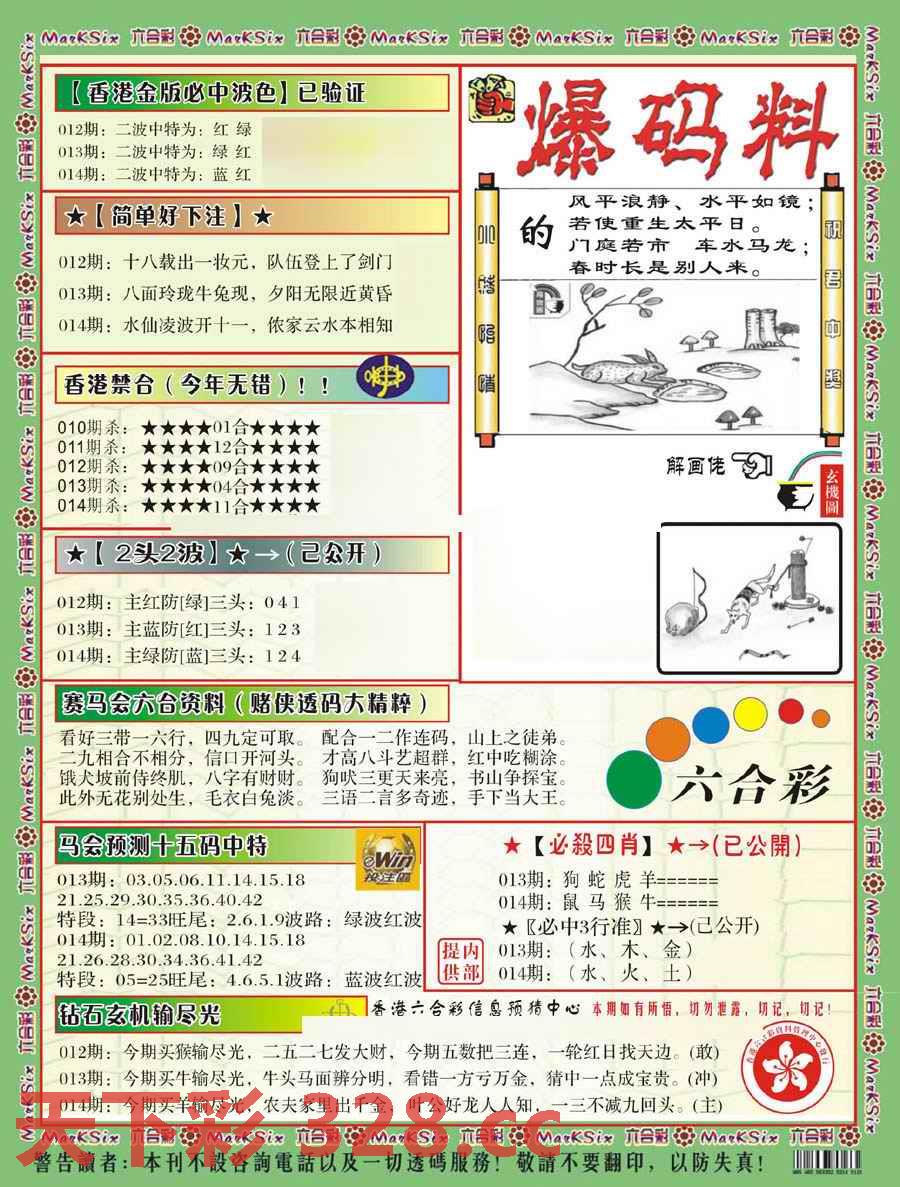 MarKSix 六合彩 MarKSix 六合彩 MarKSix 六合彩 MarKSix 六合彩 MarKSix 六合彩
【香港金版必中波色】已验证
012期：二波中特为：红 绿
013期：二波中特为：绿 红
014期：二波中特为：蓝 红
★【简单好下注】★
012期：十八载出一妆元，队伍登上了剑门
013期：八面玲珑牛兔现，夕阳无限近黄昏
014期：水仙凌波开十一，侬家云水本相知
香港禁合（今年无错）！！
010期杀：★★★★01合★★★★
011期杀：★★★★12合★★★★
012期杀：★★★★09合★★★★
013期杀：★★★★04合★★★★
014期杀：★★★★11合★★★★
★【 2头2波】★→（已公开）
012期：主红防[绿]三头：0 4 1
013期：主蓝防[红]三头：1 2 3
014期：主绿防[蓝]三头：1 2 4
爆码料
的
风平浪静、水平如镜；
若使重生太平日。
门庭若市 车水马龙；
春时长是别人来。
祝君中奖
解画佬
玄機圖
赛马会六合资料（赌侠透码大精粹）
看好三带一六行，四九定可取。 配合一二作连码，山上之徒弟。
二九相合不相分，信口开河头。 才高八斗艺超群，红中吃糊涂。
饿犬坡前侍终肌，八字有财财。 狗吠三更天来亮，书山争探宝。
此外无花别处生，毛衣白兔淡。 三语二言多奇迹，手下当大王。
六合彩
马会预测十五码中特
eWin
投注區
013期：03.05.06.11.14.15.18
21.25.29.30.35.36.40.42
特段：14=33旺尾：2.6.1.9波路：绿波红波
014期：01.02.08.10.14.15.18
21.26.28.30.34.36.41.42
特段：05=25旺尾：4.6.5.1波路：蓝波红波
★【必殺四肖】★→(已公開)
013期：狗 蛇 虎 羊======
014期：鼠 马 猴 牛======
★〖必中3行准〗★→(已公开)
013期：（水、木、金）
014期：（水、火、土）
内部提供
钻石玄机输尽光
香港六合彩信息预猜中心 本期如有所悟，切勿泄露，切记，切记！
012期：今期买猴输尽光，二五二七发大财，今期五数把三连，一轮红日找天边。(敢)
013期：今期买牛输尽光，牛头马面辨分明，看错一方亏万金，猜中一点成宝贵。(冲)
014期：今期买羊输尽光，农夫家里出千金，叶公好龙人人知，一三不减九回头。(主)
天下彩 B28.cc
MarKSix 六合彩 MarKSix 六合彩 MarKSix 六合彩 MarKSix 六合彩 MarKSix 六合彩
警告讀者：本刊不設咨詢電話以及一切透碼服務！敬請不要翻印，以防失真！